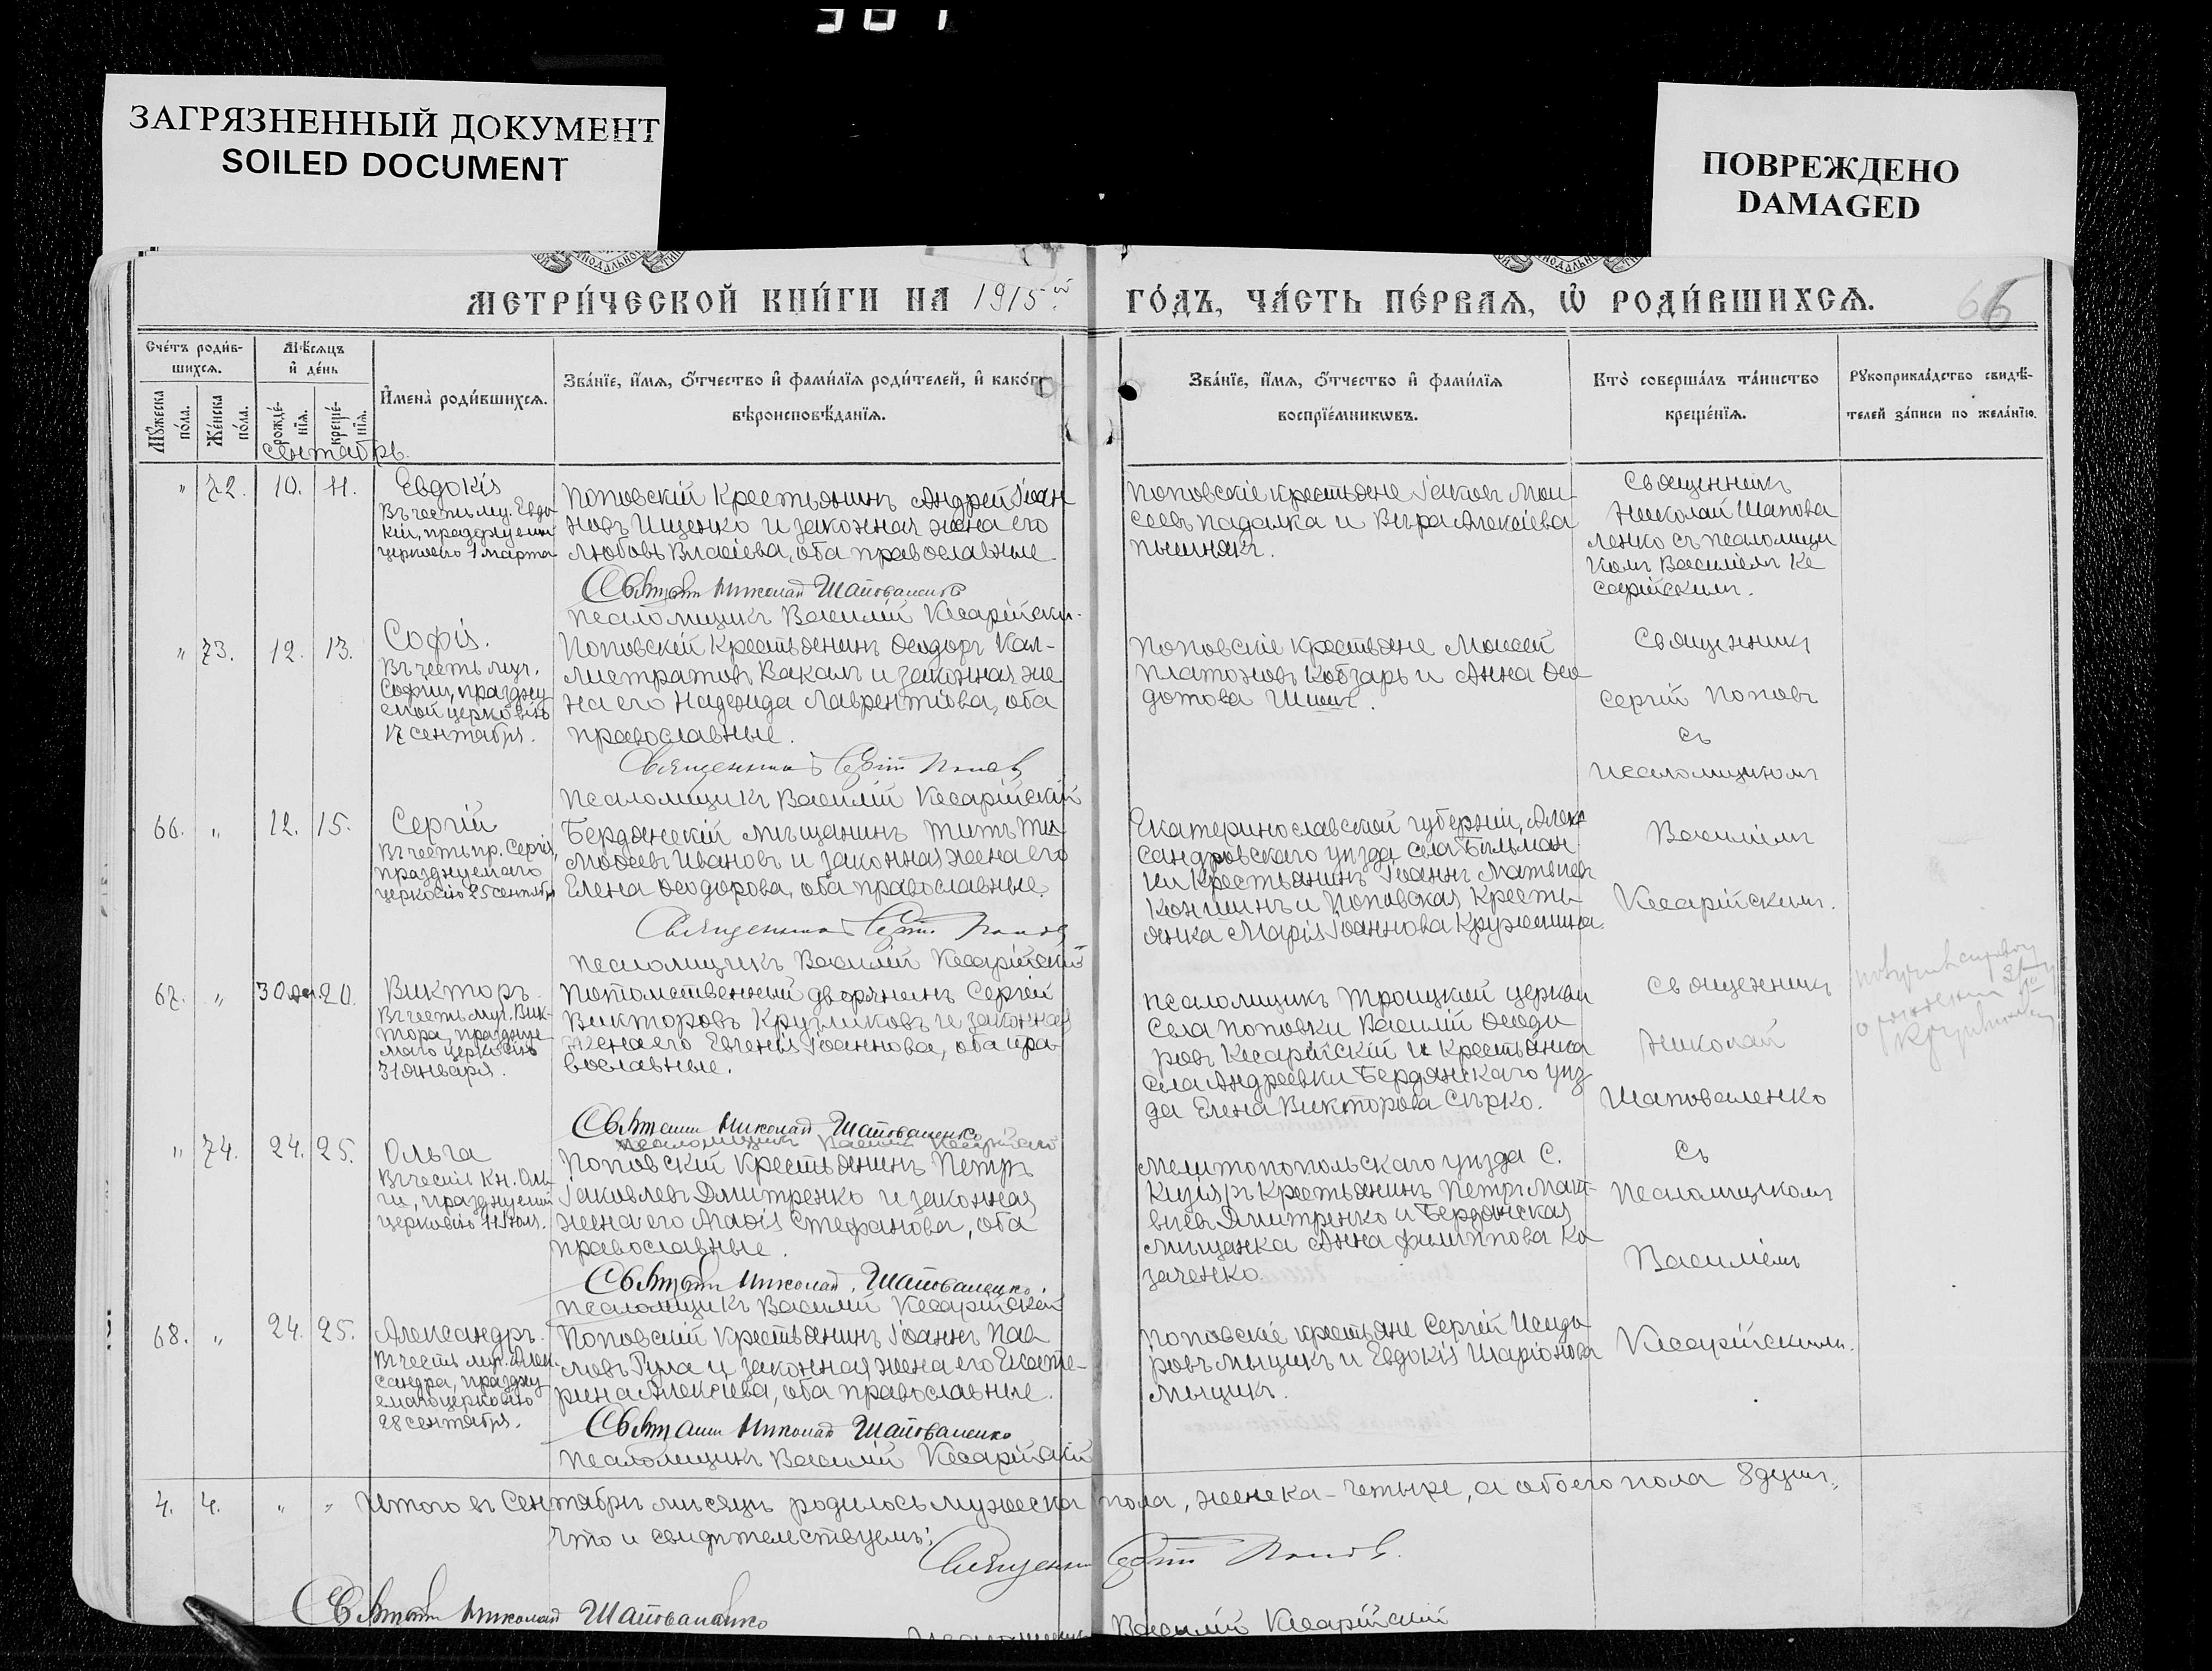 ЗАГРЯЗНЕННЫЙ ДОКУМЕНТ
SOILED DOCUMENT
ПОВРЕЖДЕНО
DAMAGED
МЕТРИ́ЧЕСКОЙ КНИ́ГИ НА 1915й
ГО́ДЪ, ЧА́СТЬ ПЕ́РВАѦ, Ѡ РОДИ́ВШИХСѦ.
66
Сче́тъ роди́в-
шихсѧ.
Мѣ́сѧцъ
и҆ де́нь
Мꙋ́жеска по́ла.
Же́нска по́ла.
рожде́-нїѧ.
креще́-нїѧ.
И҆мена̀ роди́вшихсѧ.
Зва́нїе, и҆́мѧ, ѻ҆́тчество и҆ фами́лїѧ роди́телей, и҆ како́гѡ
вѣроисповѣ́данїѧ.
Зва́нїе, и҆́мѧ, ѻ҆́тчество и҆ фами́лїѧ
воспрїе́мникѡвъ.
Кто̀ соверша́лъ та́инство
креще́нїѧ.
Рꙋкоприкла́дство свидѣ́-
телей за́писи по жела́нїю.
Сентябрь.
" 72. 10. 11.
Евдокія
Въ честь му. Евдо-
кіи, празднуемой
церковію 1 марта
Поповскій крестьянинъ Андрей Іоан
новъ Ищенко и законная жена его
Любовь Власіева, оба православные
Священ Николай Шаповаленко
Псаломщикъ Василій Кесарійскій
Поповскіе крестьяне Іаковъ Мои-
сеевъ Падалка и Вѣра Алексіева
Пышнякъ.
Священникъ
Николай Шапова
ленко съ псаломщи
комъ Василіемъ Ке
сарійскимъ.
" 73. 12. 13.
Софія.
Въ честь муч.
Софіи, праздну
емой церковію
17 сентября.
Поповскій крестьянинъ Ѳеодоръ Кал-
листратовъ Вакалъ и законная же
на его Надежда Лаврентіева, оба
православные.
Священникъ Сергій Поповъ
Псаломщикъ Василій Кесарійскій
Поповскіе крестьяне Моисей
Платоновъ Кобзарь и Анна Ѳео
дотова
Священникъ
Сергій Поповъ
съ
псаломщикомъ
66. " 12. 15.
Сергій
Въ честь пр. Сергія,
празднуемаго
церковію 25 сентября
Бердянскій мѣщанинъ Титъ Ти-
моѳеевъ Ивановъ и законная жена его
Елена Ѳеодорова, оба православные.
Священникъ Сергій Поповъ
Псаломщикъ Василій Кесарійскій
Екатеринославской губерніи, Алек
сандровскаго уѣзда села Бѣльман
ки крестьянинъ Іоаннъ Матвіевъ
и Поповская кресть-
янка Марія Іоаннова
Василіемъ
Кесарійскимъ.
67. " 30 20.
Викторъ.
Въ честь муч. Вик-
тора, праздну
емаго церковію
31 января.
Потомственный дворянинъ Сергій
Викторовъ Крузликовъ и законная
жена его Евгенія Іоаннова, оба пра-
вославные.
Священ Николай Шаповаленко
Псаломщикъ Василій Кесарійскій
Псаломщикъ Троицкой церкви
села Поповки Василій Ѳеодо
ровъ Кесарійскій и крестьянка
села Андреевки Бердянскаго уѣз
да Елена Викторова Сѣрко.
Священникъ
Николай
Шаповаленко
" 74. 24. 25.
Ольга
Въ честь кн. Оль-
ги, празднуемой
церковію 11 іюля.
Поповскій крестьянинъ Петръ
Іаковлевъ Дмитренко и законная
жена его Марія Стефанова, оба
православные.
Священ Николай Шаповаленко
Псаломщикъ Василій Кесарійскій
Мелитопопольскаго уѣзда с.
Кизіяръ крестьянинъ Петръ Мат-
віевъ Дмитренко и Бердянская
мѣщанка Анна Филиппова Ка
заченко.
съ
псаломщикомъ
Василіемъ
68. " 24. 25.
Александръ.
Въ честь муч. Алек
сандра, праздну
емаго церковію
28 сентября.
Поповскій крестьянинъ Іоаннъ Пав
ловъ Гула и законная жена его Екате-
рина Алексіева, оба православные.
Священ Николай Шаповаленко
Псаломщикъ Василій Кесарійскій
Поповскіе крестьяне Сергій Исидо
ровъ Мыцикъ и Евдокія Иларіонова
Мыцикъ.
Кесарійскимъ.
4. 4. " " Итого въ Сентябрѣ мѣсяцѣ родилось мужеска пола, женска - четыре, а обоего пола 8 душъ,
что и свидѣтельствуемъ:
Священникъ Сергій Поповъ.
Священ Николай Шаповаленко
Псаломщикъ Василій Кесарійскій